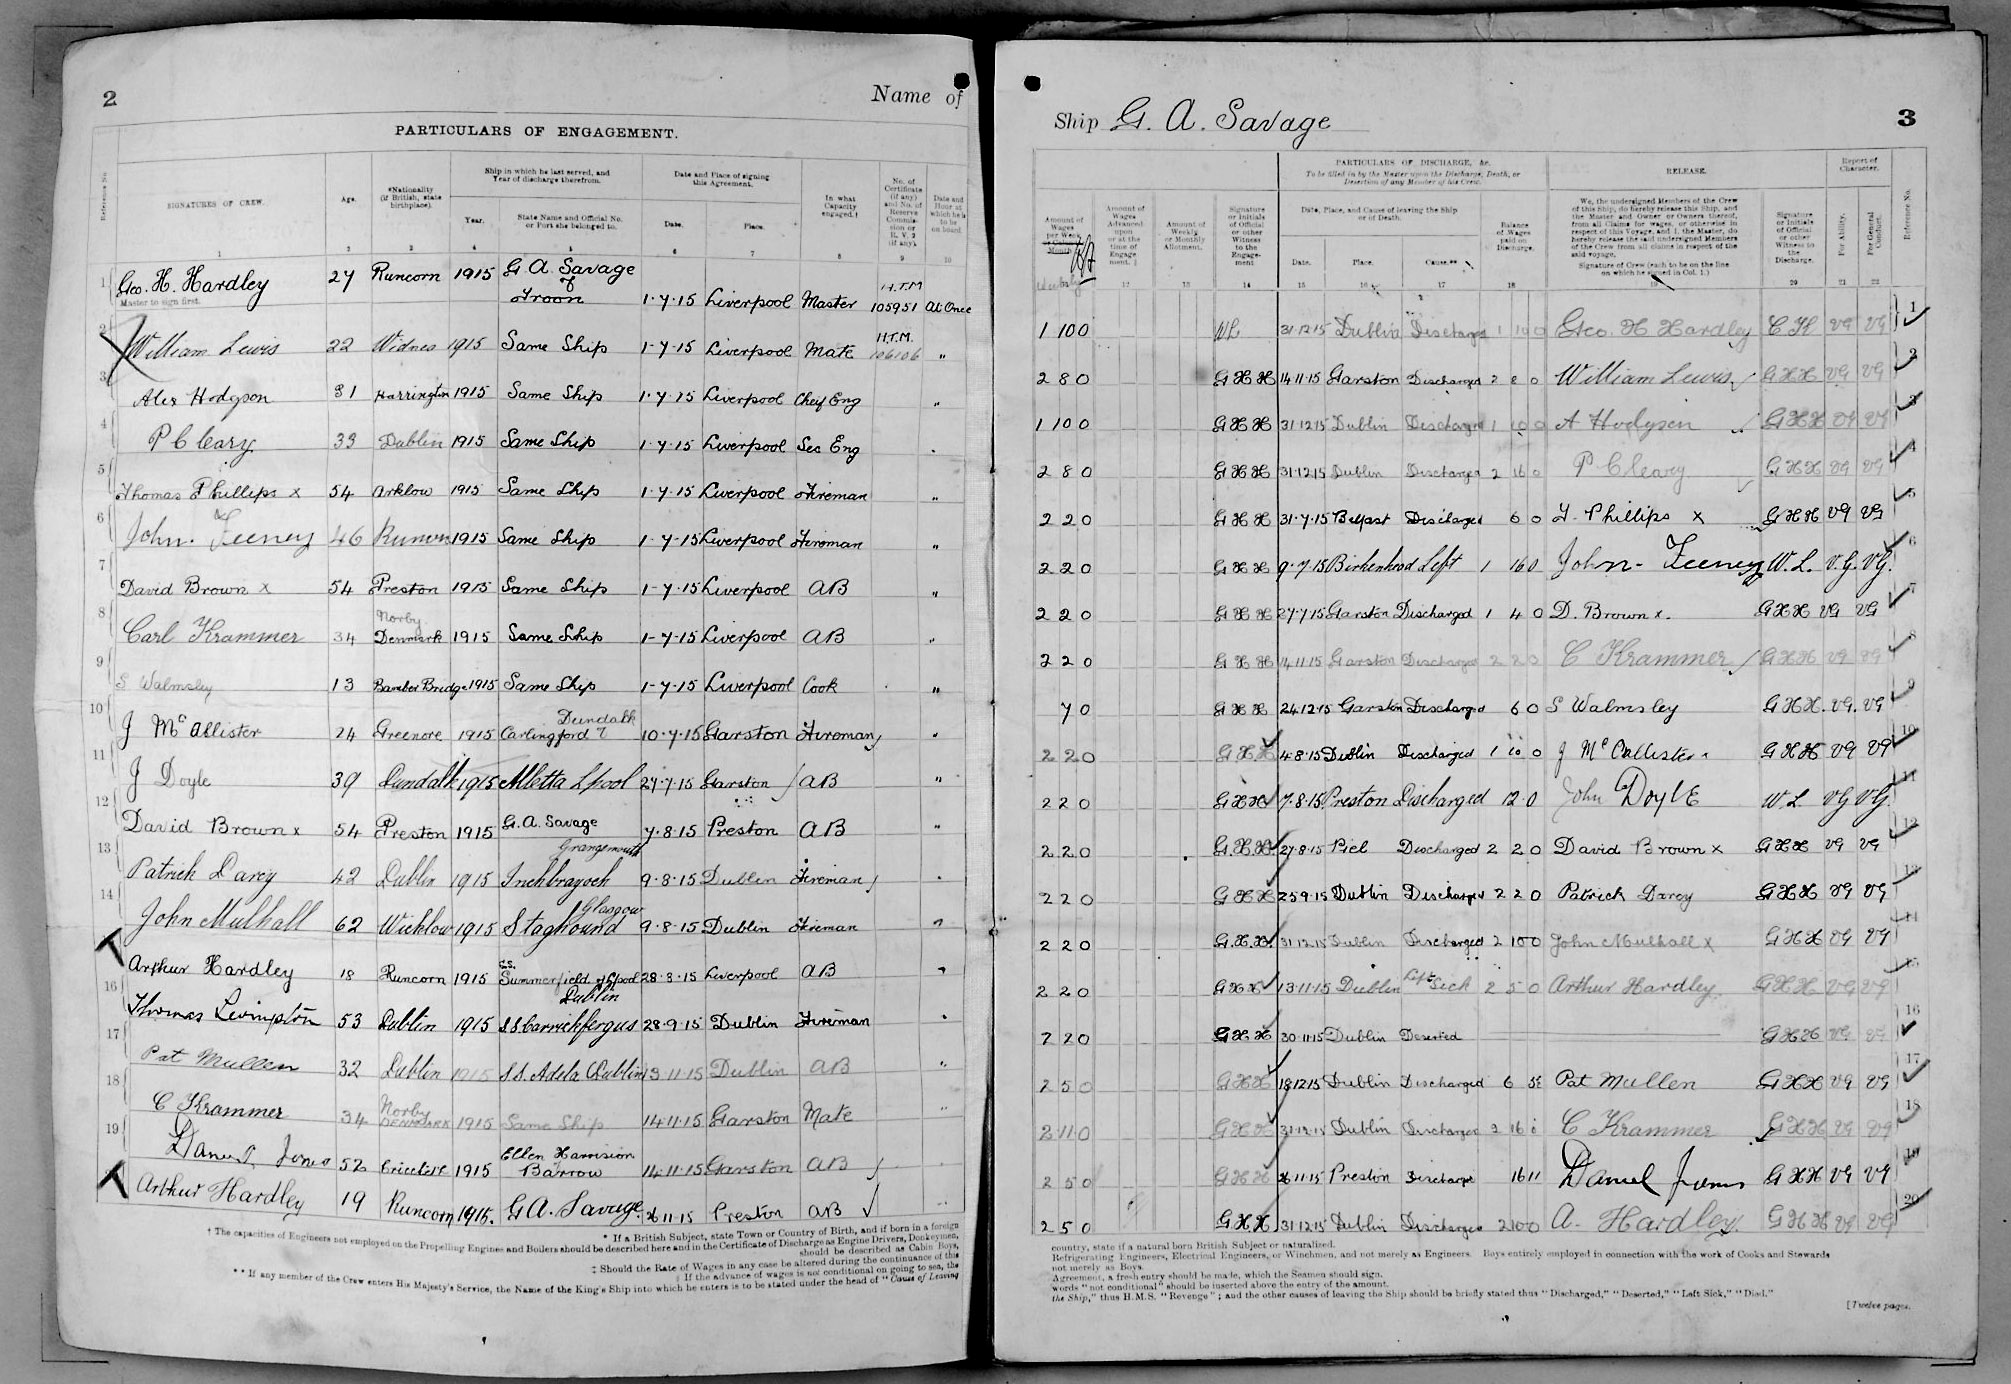 2
Name of
PARTICULARS OF ENGAGEMENT.
Reference No.
SIGNATURES OF CREW.
Age.
*Nationality (if British, state birthplace).
Ship in which he last served, and Year of discharge therefrom.
Year.
State Name and Official No. or Port she belonged to.
Date and Place of signing this Agreement.
Date.
Place.
In what Capacity engaged.†
No. of Certificate (if any) and No. of Reserve Commission or R.V. 2 (if any).
Date and Hour at which he is to be on board
1 2 3 4 5 6 7 8 9 10
1 Geo. H. Hardley 27 Runcorn 1915 G A Savage of Troon 1-7-15 Liverpool Master H.T.M 105951 At Once
Master to sign first.
2 William Lewis 22 Widnes 1915 Same Ship 1-7-15 Liverpool Mate H.T.M. 106106 "
3 Alex Hodgson 31 Harrington 1915 Same Ship 1-7-15 Liverpool Cheif Eng "
4 P Cleary 33 Dublin 1915 Same Ship 1-7-15 Liverpool Sec Eng
5 Thomas Phillips x 54 Arklow 1915 Same Ship 1-7-15 Liverpool Fireman "
6 John. Feeney 46 Runcorn 1915 Same Ship 1-7-15 Liverpool Fireman "
7 David Brown x 54 Preston 1915 Same Ship 1-7-15 Liverpool AB "
8 Carl Krammer 34 Norby Denmark 1915 Same Ship 1-7-15 Liverpool AB "
9 S Walmsley 13 Bamber Bridge 1915 Same Ship 1-7-15 Liverpool Cook "
10 J McAllister 24 Greenore 1915 Carlingford Dundalk 10-7-15 Garston Fireman "
11 J Doyle 39 Dundalk 1915 Lpool 27-7-15 Garston AB "
12 David Brown x 54 Preston 1915 G.A. Savage 7.8.15 Preston AB "
13 Patrick Darcy 42 Dublin 1915 Inchbrayock Grangemouth 9.8.15 Dublin Fireman "
14 John Mulhall 62 Wicklow 1915 Staghound Glasgow 9.8.15 Dublin Fireman "
Arthur Hardley 18 Runcorn 1915 S.S. Summerfield of Lpool Liverpool AB "
16 Thomas Livingston 53 Dublin 1915 S.S. Carrickfergus Dublin 28.9.15 Dublin Fireman "
17 Pat Mullen 32 Dublin 1915 S.S. Adela Dublin 13.11.15 Dublin AB "
18 C Krammer 34 Norby DENMARK 1915 Same Ship 14.11.15 Garston Mate "
19 Daniel Jones 52 1915 Ellen Harrision Barrow 14.11.15 Garston AB
Arthur Hardley 19 Runcorn 1915. G A. Savage. 26 11.15 Preston AB
* If a British Subject, state Town or Country of Birth, and if born in a foreign
† The capacities of Engineers not employed on the Propelling Engines and Boilers should be described here and in the Certificate of Discharge as Engine Drivers, Donkeymen,
should be described as Cabin Boys,
‡ Should the Rate of Wages in any case be altered during the continuance of this
§ If the advance of wages is not conditional on going to sea, the
** If any member of the Crew enters His Majesty's Service, the Name of the King's Ship into which he enters is to be stated under the head of "Cause of Leaving
Ship G. A. Savage
3
Amount of Wages per Week or Calendar Month
Weekly
Amount of Wages Advanced upon or at the time of Engagement.
Amount of Weekly or Monthly Allotment.
Signature or Initials of Official or other Witness to the Engagement
PARTICULARS OF DISCHARGE, &c.
To be filled in by the Master upon the Discharge, Death, or Desertion of any Member of his Crew.
Date, Place, and Cause of leaving the Ship or of Death.
Date.
Place.
Cause.**
Balance of Wages paid on Discharge.
RELEASE.
We, the undersigned Members of the Crew of this Ship, do hereby release this Ship, and the Master and Owner or Owners thereof, from all Claims for wages, or otherwise in respect of this Voyage, and I, the Master, do hereby release the said undersigned Members of the Crew from all claims in respect of the said voyage.
Signature of Crew (each to be on the line on which he signed in Col. 1.)
Signature or Initials of Official or other Witness to the Discharge.
Report of Character.
For Ability.
For General Conduct.
Reference No.
12 13 14 15 16 17 18 19 20 21 22
1 10 0 WL 31.12.15 Dublin Discharged 1 10 0 Geo. H Hardley C K VG VG 1
2 8 0 GHH 14.11.15 Garston Discharged 2 8 0 William Lewis GHH VG VG 2
1 10 0 GHH 31.12.15 Dublin Discharged 1 10 0 A Hodgson GHH VG VG 3
2 8 0 GHH 31.12.15 Dublin Discharged 2 16 0 P Cleary GHH VG VG 4
2 2 0 GHH 31.7.15 Belfast Discharged 6 0 T. Phillips X GHH VG VG 5
2 2 0 GHH 9.7.15 Birkenhead Left 1 16 0 John- Feeney W.L. V.G. VG. 6
2 2 0 GHH 27.7.15 Garston Discharged 1 4 0 D. Brown x. GHH VG VG 7
2 2 0 GHH 14.11.15 Garston Discharged 2 2 0 C Krammer GHH VG VG 8
7 0 GHH 24.12.15 Garston Discharged 6 0 S Walmsley GHH. VG. VG 9
2 2 0 GHH 4.8.15 Dublin Discharged 1 10 0 J McCallister GHH VG VG 10
2 2 0 GHH 7.8.15 Preston Discharged 12 0 John DoylE W L VG VG 11
2 2 0 G.H.H. 27.8.15 Piel Discharged 2 2 0 David Brown x GHH VG VG 12
2 2 0 GHH 25.9.15 Dublin Discharged 2 2 0 Patrick Darcy GHH VG VG 13
2 2 0 G.H.H. 31.12.15 Dublin Discharged 2 10 0 John Mulhall x GHH VG VG 14
2 2 0 GHH 13.11.15 Dublin Left Sick 2 5 0 Arthur Hardley. GHH VG VG 15
2 2 0 GHH 30.11.15 Dublin Deserted GHH VG VG 16
2 5 0 GHH 18.12.15 Dublin Discharged Pat Mullen GHH VG VG 17
2 11 0 GHH 31.12.15 Dublin Discharged C Krammer GHH VG VG 18
2 5 0 GHH 26.11.15 Preston Discharged 16 11 Daniel Jones GHH VG VG 19
2 5 0 GHH 31.12.15 Dublin Discharged 2 10 0 A. Hardley. GHH VG VG 20
country, state if a natural born British Subject or naturalized.
Refrigerating Engineers, Electrical Engineers, or Winchmen, and not merely as Engineers. Boys entirely employed in connection with the work of Cooks and Stewards
not merely as Boys.
Agreement, a fresh entry should be made, which the Seamen should sign.
words "not conditional" should be inserted above the entry of the amount.
the Ship," thus H.M.S. "Revenge"; and the other causes of leaving the Ship should be briefly stated thus "Discharged," "Deserted," "Left Sick," "Died."
[Twelve pages.